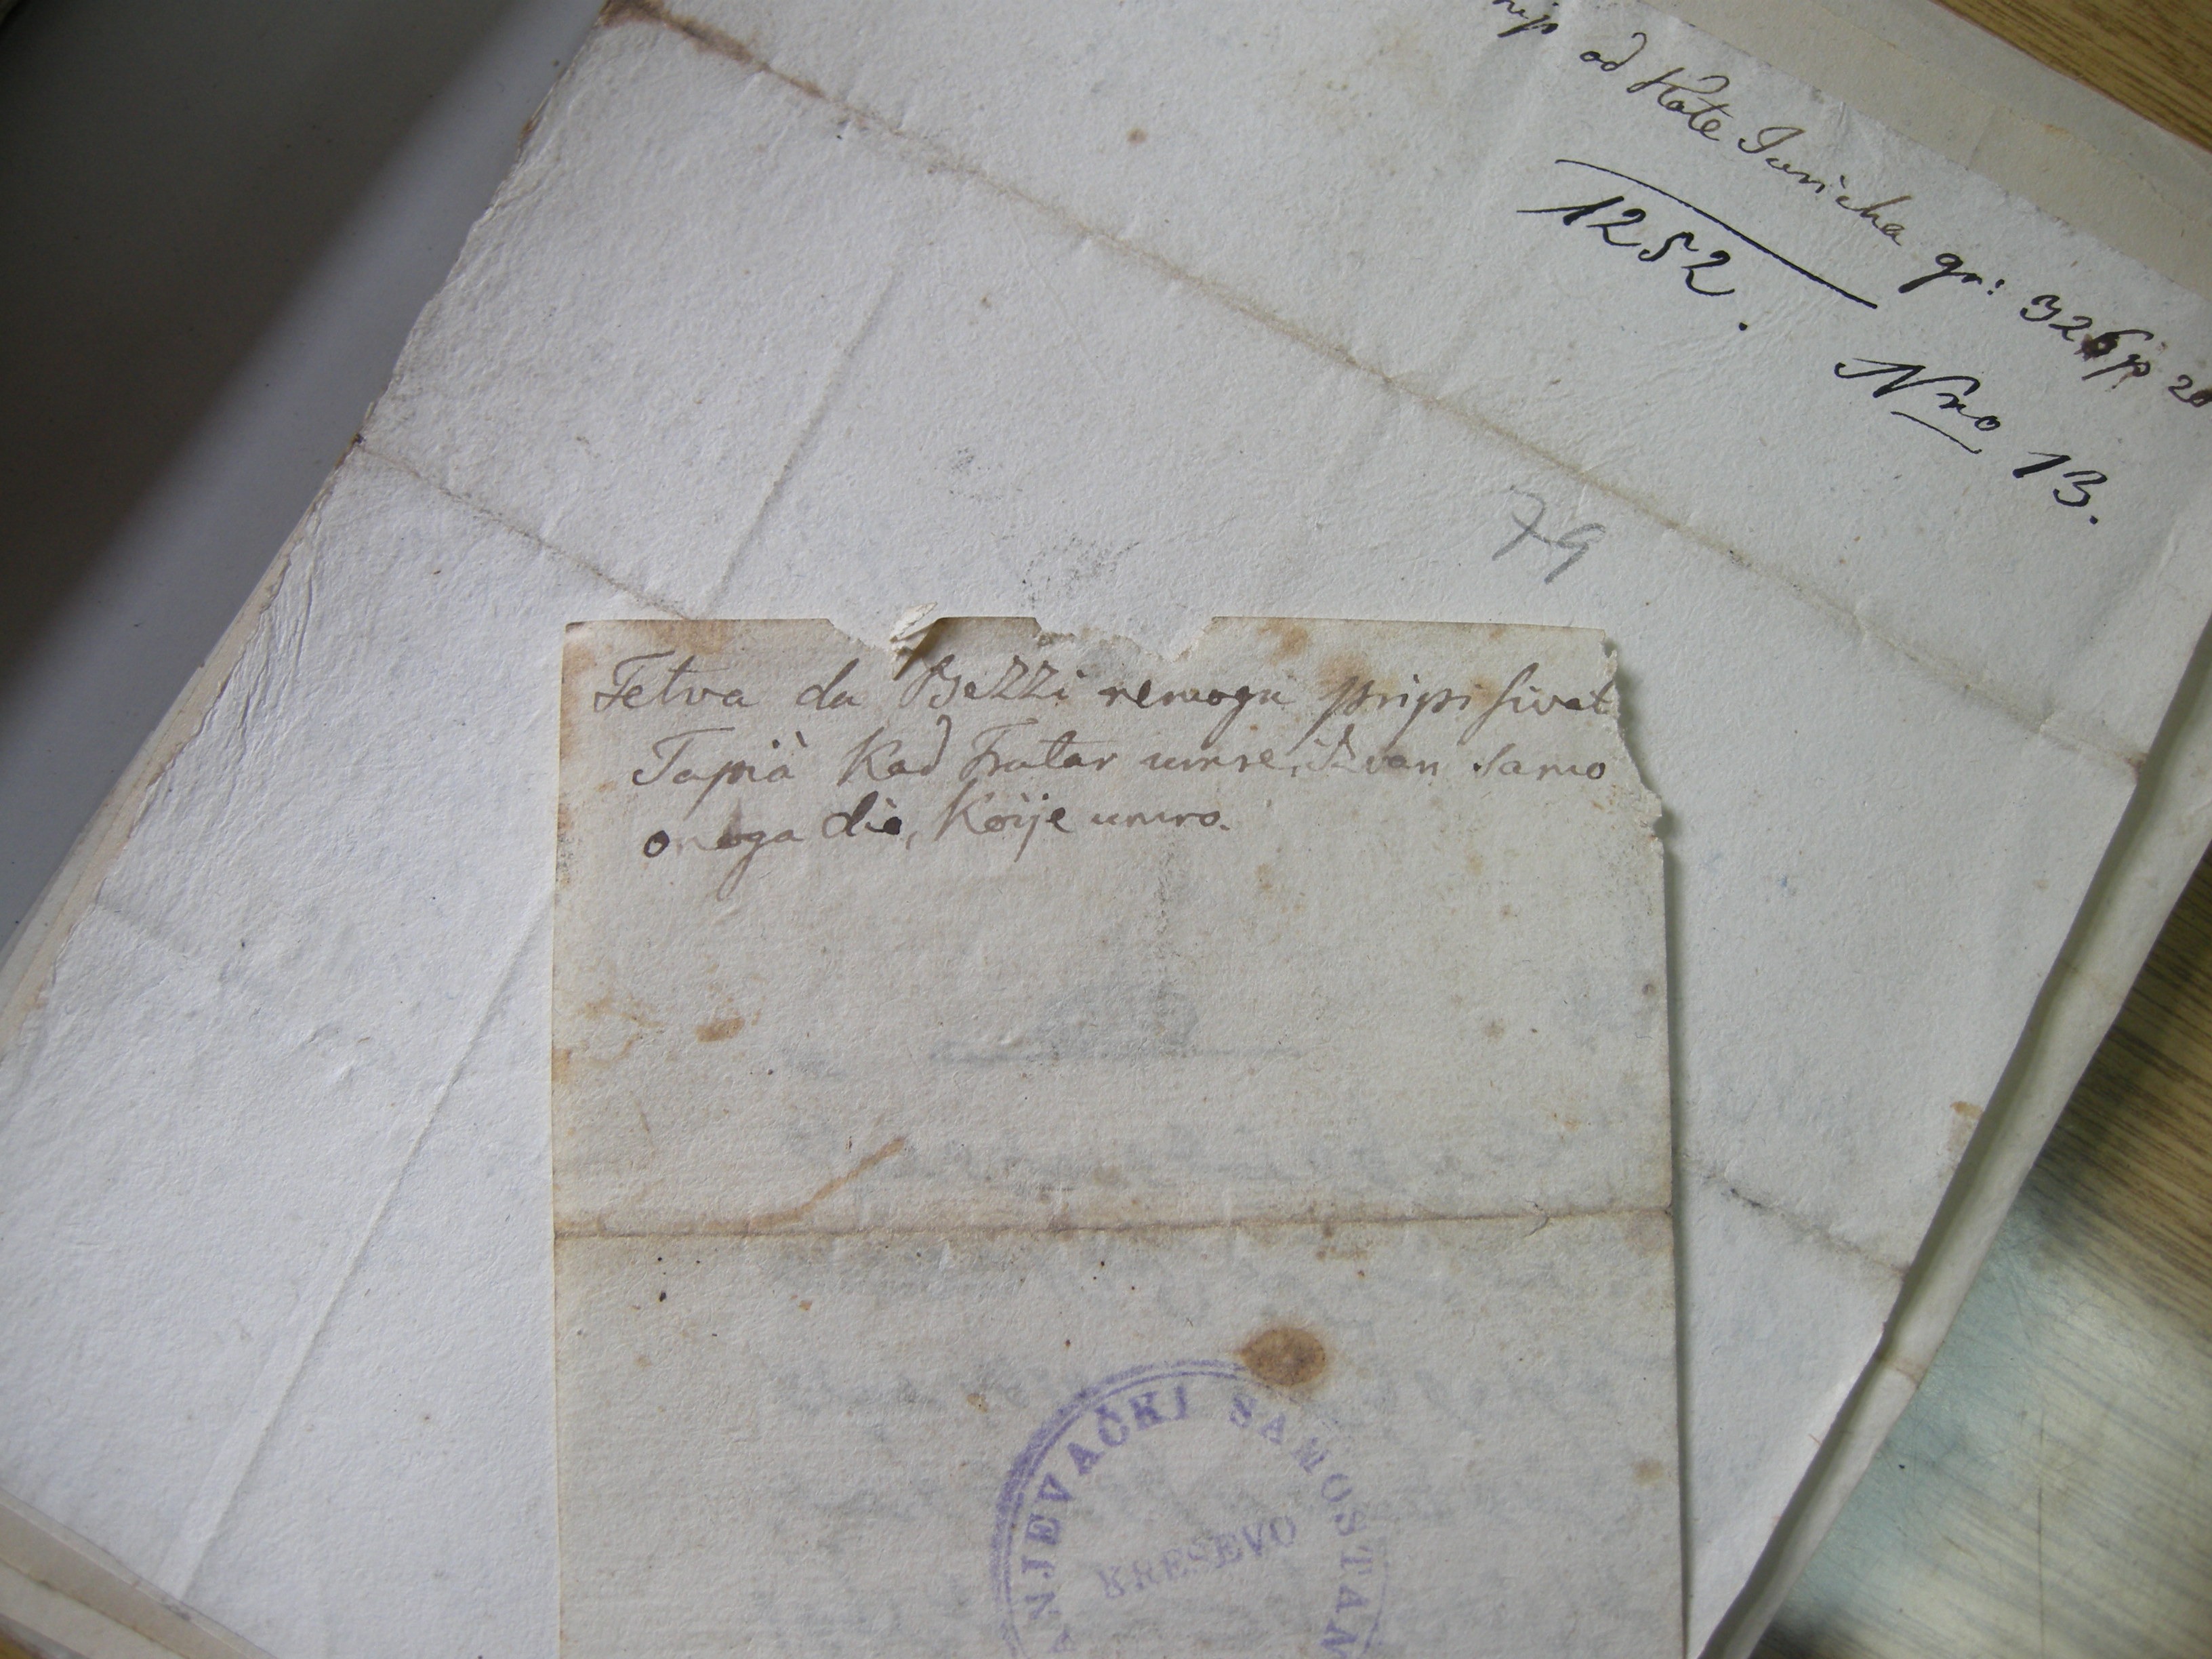 od Kate Juricha gr: 326 p 20
1252.
Nro 13.
79
Fetva da Bezzi nemogu pripisivat
Tapià Kad Fratar umre, Izvan samo
onoga dia, Koije umro.
NJEVAČKI SAMOSTAN
KREŠEVO